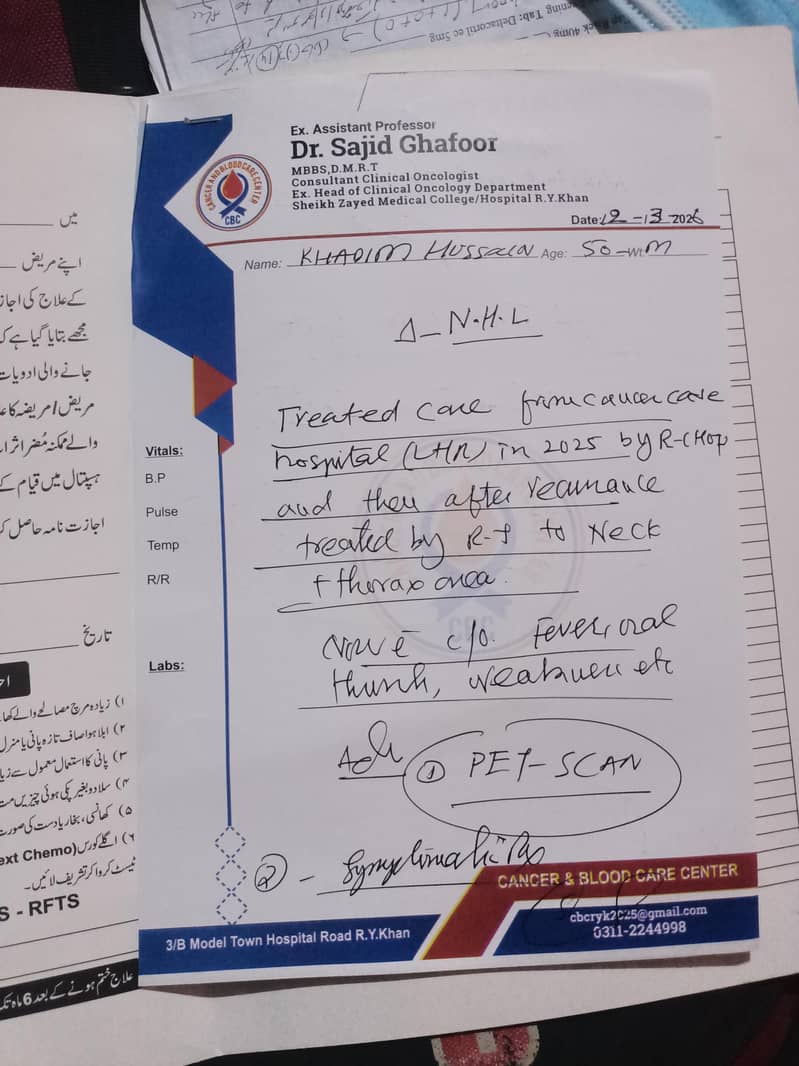 Ex. Assistant Professor
Dr. Sajid Ghafoor
MBBS,D.M.R.T
Consultant Clinical Oncologist
Ex. Head of Clinical Oncology Department
Sheikh Zayed Medical College/Hospital R.Y.Khan
CANCER AND BLOOD CARE CENTER
CBC
Date: 12-13 2026
Name: KHADIM HUSSAIN Age: 50 Wt M
Δ_ N.H.L
Treated care from cancer care
hospital (LHR) in 2025 by R-CHOP
and then after recurrance
treated by R-T to Neck
+ thorax area.
Now c̄ c/o Fever, oral
thrush, weakness etc
Adv ① PET-SCAN
② - Symptomatic Rx
Vitals:
B.P
Pulse
Temp
R/R
Labs:
CANCER & BLOOD CARE CENTER
cbcryk2025@gmail.com
0311-2244998
3/B Model Town Hospital Road R.Y.Khan
میں
اپنے مریض
کے علاج کی اجاز
مجھے بتایا گیا ہے ک
جانے والی ادویات
مریض/مریضہ کا عا
والے ممکنہ مُضر اثرا
ہسپتال میں قیام کے
اجازت نامہ حاصل ک
تاریخ
۱) زیادہ مرچ مصالحے والے کھا
۲) ابلا ہوا صاف تازہ پانی یا منرل
۳) پانی کا استعمال معمول سے زیا
۴) سلاد و بغیر پکی ہوئی چیزیں مت
۵) کھانسی، بخار یا دست کی صورت
۶) اگلے کورس (ext Chemo
ٹیسٹ کروا کر تشریف لائیں۔
S - RFTS
علاج ختم ہونے کے بعد 6 ماہ تک
Tab: Deltacortil ec 5mg
40mg